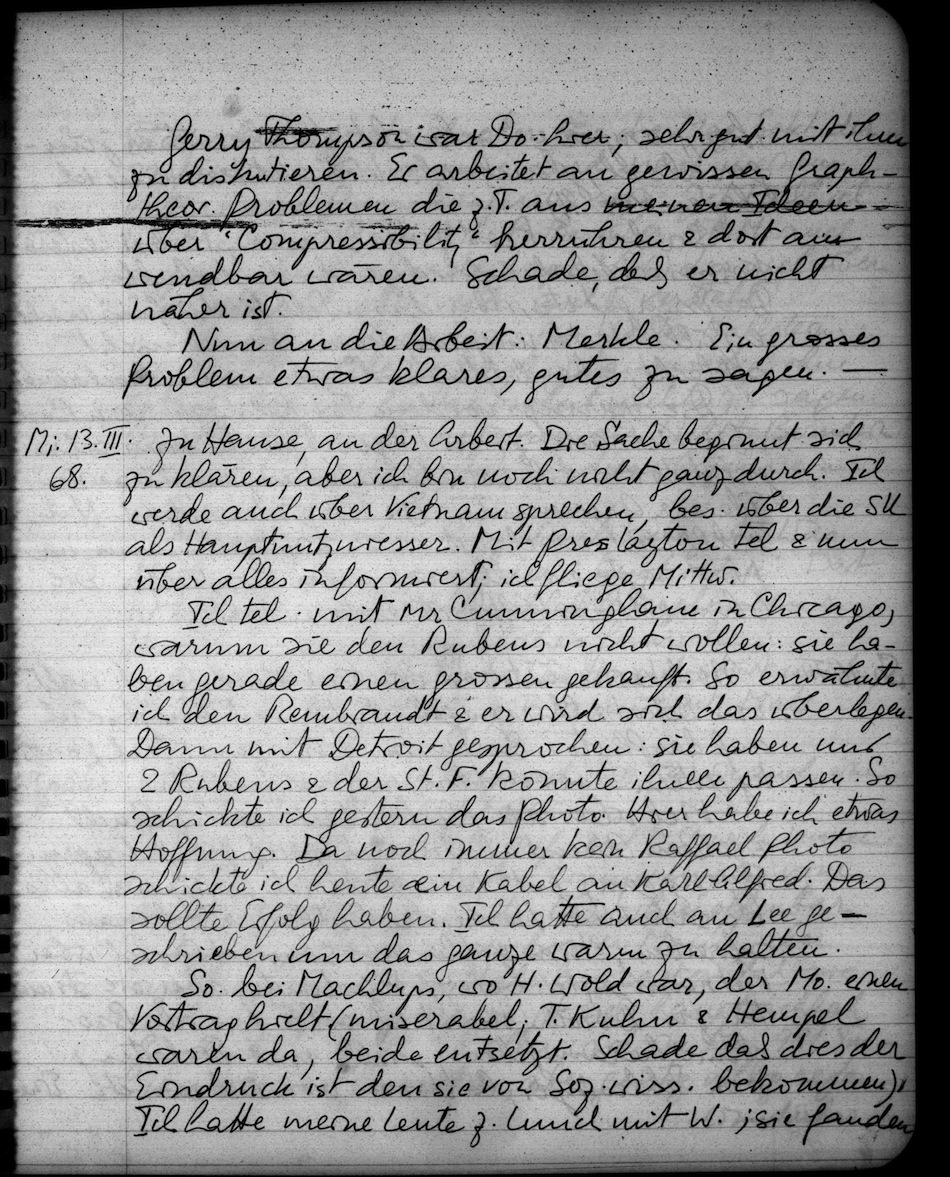 Gerry Thompson war Do. hier, sehr gut mit ihm
zu diskutieren. Er arbeitet an gewissen Graph-
theor. Problemen die z.T. aus meinen Ideen
über "Compressibility" herrühren & dort an-
wendbar wären. Schade, daß er nicht
näher ist.
Nun an die Arbeit: Merkle. Ein grosses
Problem etwas klares, gutes zu sagen. —
Mi. 13. III. Zu Hause, an der Arbeit. Die Sache beginnt sich
68. zu klären, aber ich bin noch nicht ganz durch. Ich
werde auch über Vietnam sprechen, bes. über die SU
als Hauptnutzniesser. Mit Pres Layton tel & nun
über alles informiert; ich fliege Mittw.
Ich tel. mit Mr Cunningham in Chicago,
warum sie den Rubens nicht wollen: sie ha-
ben gerade einen grossen gekauft. So erwähnte
ich den Rembrandt & er wird sich das überlegen.
Dann mit Detroit gesprochen: sie haben nur
2 Rubens & der St. F. könnte ihnen passen. So
schickte ich gestern das Photo. Hier habe ich etwas
Hoffnung. Da noch immer kein Raffael Photo
schickte ich heute ein Kabel an Karl Alfred. Das
sollte Erfolg haben. Ich hatte auch an Lee ge-
schrieben um das ganze warm zu halten.
So. bei Machlups, wo H. Wold war, der Mo. einen
Vortrag hielt (miserabel; T. Kuhn & Hempel
waren da, beide entsetzt. Schade daß dies der
Eindruck ist den sie von Soz. wiss. bekommen).
Ich hatte meine Leute z. Lunch mit W.; sie fanden